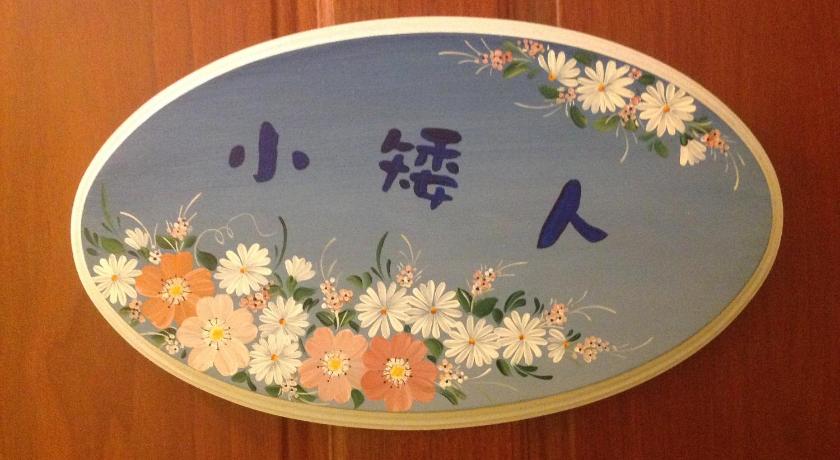 小矮人